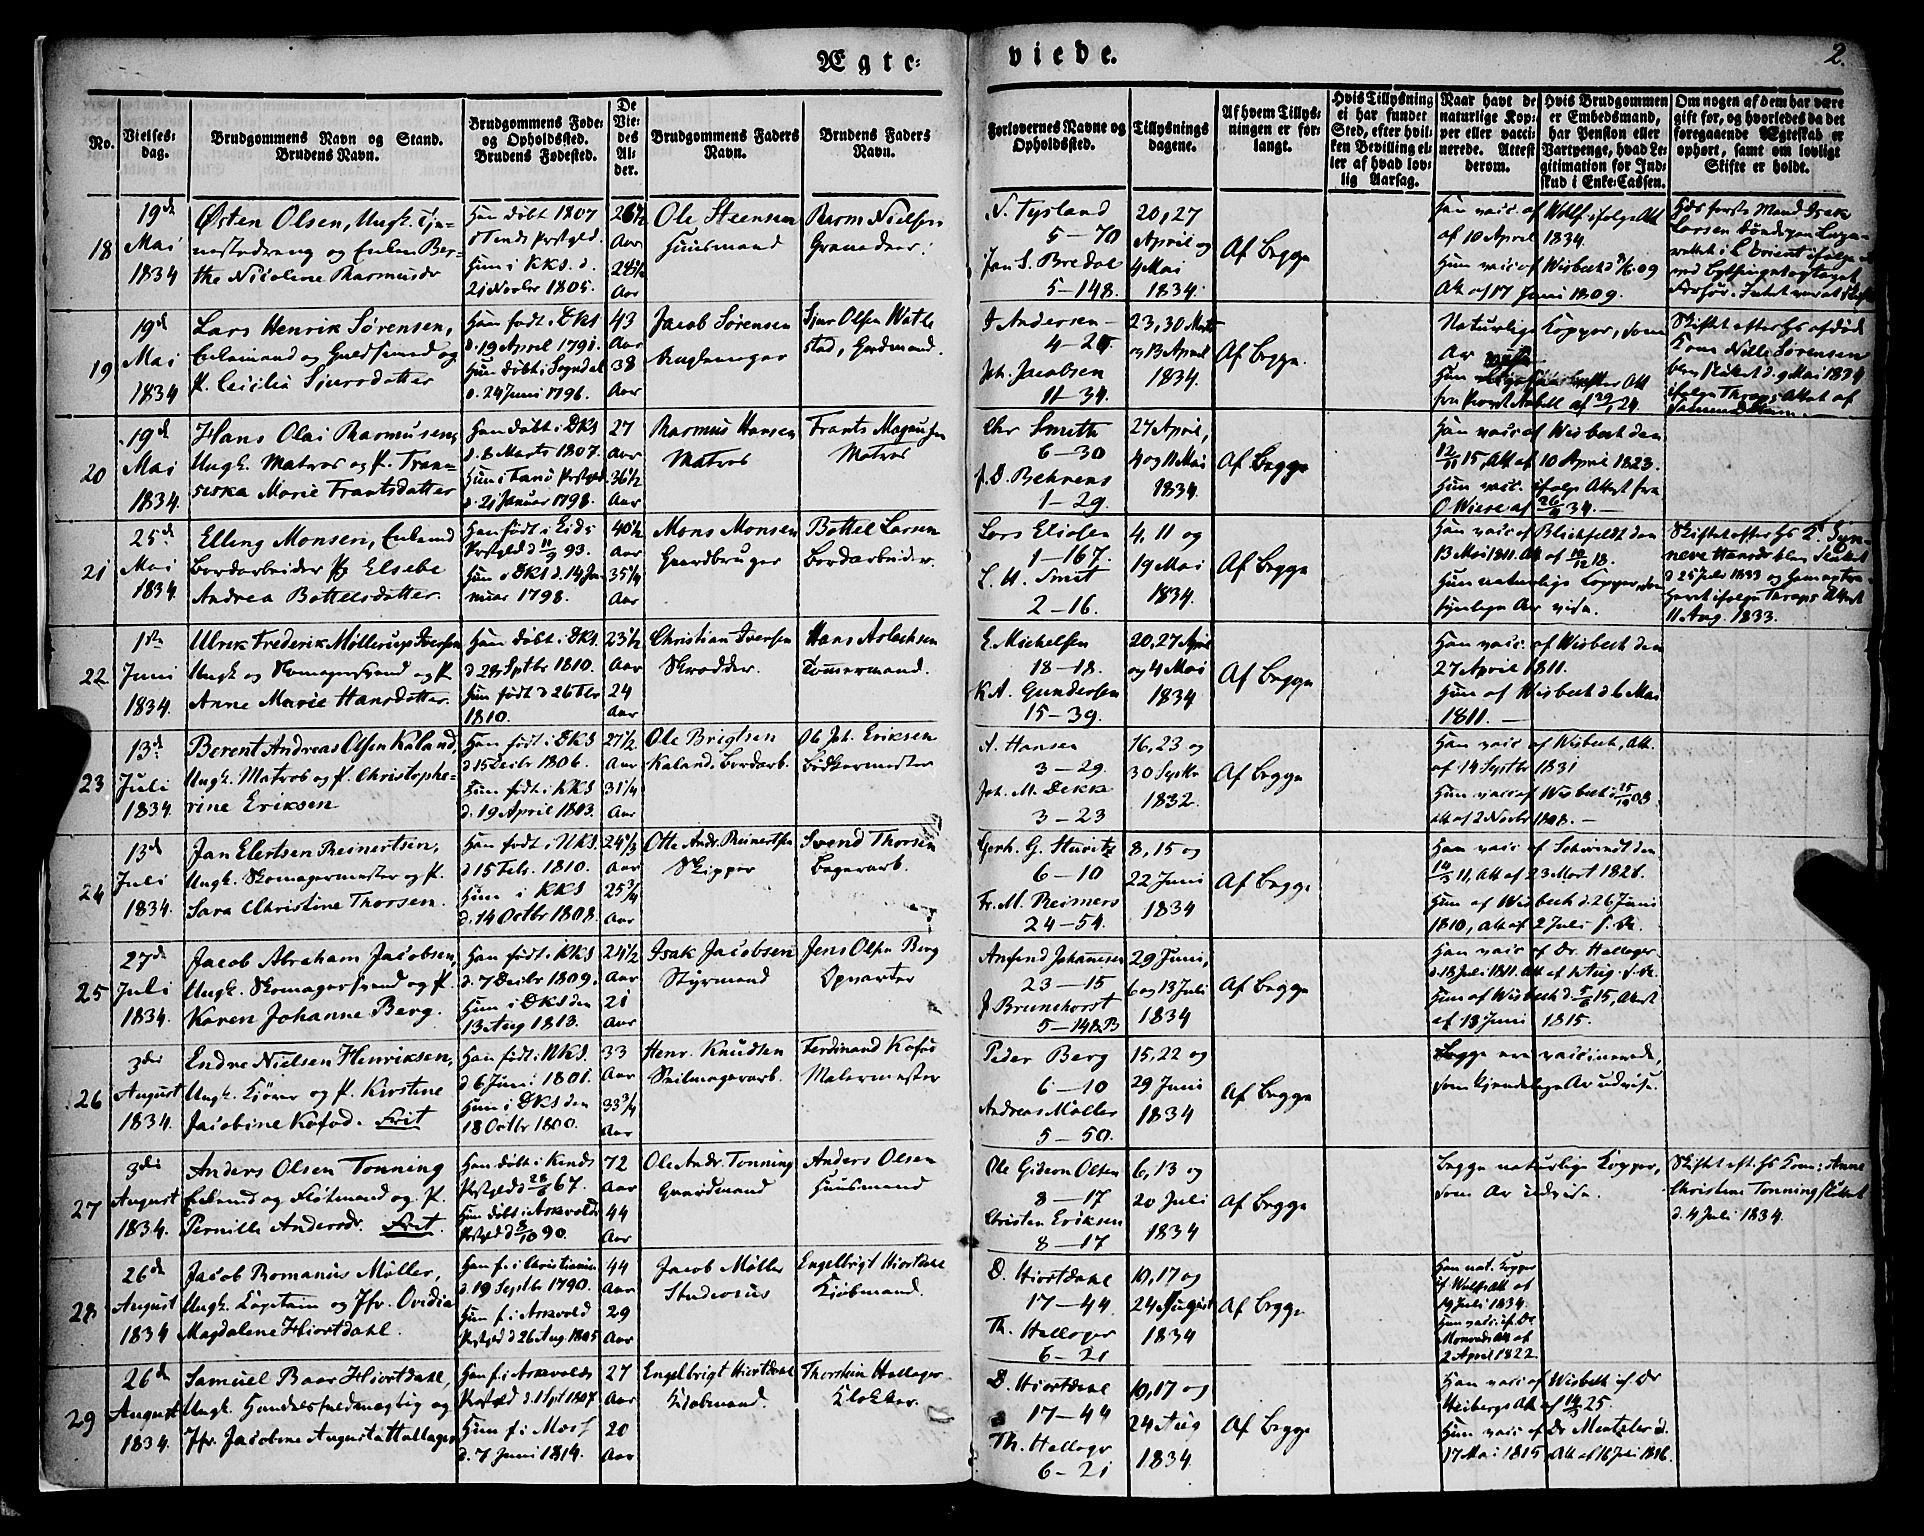 Ægte-
viede.
2.
No.
Vielses-
dag.
Brudgommens Navn og Stand.
Brudens Navn.
Brudgommens Føde-
og Opholdssted.
Brudens Fødested.
De
Vie-
des
Al-
der.
Brudgommens Faders
Navn.
Brudens Faders
Navn.
Forlovernes Navne og
Opholdssted.
Tillysnings
dagene.
Af hvem Tillys-
ningen er for-
langt.
Hvis Tillysning
ei har fundet
Sted, efter hvil-
ken Bevilling el-
ler af hvad lov-
lig Aarsag.
Naar havt de
naturlige Kop-
per eller vacci-
nerede. Attest
derom.
Hvis Brudgommen
er Embedsmand,
har Pension eller
Vartpenge, hvad Le-
gitimation for Ind-
skud i Enke-Cassen.
Om nogen af dem har være
gift før, og hvorledes da det
foregaaende Ægteskab er
ophørt, samt om lovligt
Skifte er holdt.
18
19de
Mai
1834
Østen Olsen, Ungk.
og Enken Ber-
the Nicoline Rasmusdr
Han døbt 1807
Hun i KKS. d.
21 Novbr 1805.
26½
Aar
28½
Aar
Ole Steensen
Huusmand
Rasm Nielsen
N. Tysland
5–70
Jan S. Bredal
5–148.
20, 27
April og
4 Mai
1834.
Af Begge
Han vacc af Wolf ifølge Att
af 10 April 1834.
Hun vacc af Wisbech
Att af 17 Juni 1809.
19
19de
Mai
1834
Lars Henrik Sørensen,
Enkemand og Guldsmed og
P. Cecilia Sjursdatter
Han født i DKS
d. 19 April 1791.
Hun døbt i Sogndal
d. 24 Juni 1796.
43
Aar
38
Aar
Jacob Sørensen
Sjur Olsen
Gardmand.
J Andersen
Joh. Jacobsen
11–34.
23, 30 Marts
og 13 April
1834.
Af Begge
Naturlige Kopper, som
Ar
Skiftet efter Hs afdøde
Kone Nille Sørensen
d. 9 Mai 1834
20
19de
Mai
1834
Hans Olai Rasmusen,
Ungk. Matros og P. Fran-
siska Marie Frantsdatter
Han døbt i DKS
d. 8 Marts 1807.
Hun i Fanø Prstgjd
d. 21 Januar 1798.
27
Aar
36½
Aar
Rasmus Hansen
Matros
Frants Magnusen
Matros
Chr Smith
6–30
J. D. Behrens
1–29.
27 April,
4 og 11 Mai
1834.
Af Begge
Han vacc af Wisbech den
12/11 15, Att af 10 April 1823.
Hun vacc. ifølge Attest fra
O Wiese af 26/4 34.
21
25de
Mai
1834
Elling Monsen, Enkemd
Bordarbeider P Elsebe
Andrea Bottelsdatter
Han født i Eids
Prstgjd d 11/9 93.
Hun i DKS d. 14 Ja-
nuar 1798.
40½
Aar
35¼
Aar
Mons Monsen
Gaardbruger
Bottel Larsen
Bordarbeider.
Lars Eliasen
1–167.
L. H. Smit
2–16.
4, 11 og
19 Mai
1834.
Af Begge
Han vacc af Blichfeldt den
13 Mai 1811. Att af 10/12 18.
Hun naturlige Kopper, som
synlige Ar vise.
d 25 Juli 1833
11 Aug. 1833.
22
1ste
Juni
1834.
Ulrik Frederik Møllerup Iversen
Ungk og Skomagersvend og P
Anne Marie Hansdatter
Han døbt i DKS.
d 28 Septbr 1810.
Hun født d 26 Febr
1810.
23½
Aar
24
Aar
Christian Iversen
Skrædder.
Hans Aslachsen
Tømmermand.
E. Michelsen
18–18.
K A. Gundersen
15–39.
20, 27 April
og 4 Mai
1834
Af Begge
Han vacc. af Wisbech den
27 April 1811.
Hun af Wisbech d 6 Mai
1811.
23
13de
Juli
1834
Berent Andreas Olsen Kaland,
Ungk. Matros og P. Christophe-
rine Eriksen
Han født i DKS
d 15 Decbr 1806.
Hun født i KKS
d. 19 April 1803.
27½
Aar
31¼
Aar
Ole Brigtsen
Kaland, Bordarb.
Ole Joh. Eriksen
Bødkermester
A. Hansen
3–29.
Joh. M. Dekke
3–23
16, 23 og
30 Septbr
1832.
Af Begge
Han vacc af Wisbech, Att.
af 14 Septbr 1831
Hun vacc af Wisbech d 15/10 08
Att af 2 Novbr 1808.
24
13de
Juli
1834.
Jan Elertsen Reinertsen,
Ungk. Skomagermester og P.
Sara Christine Thorsen.
Han født i NKS.
d 15 Febr. 1810.
Hun i KKS
d. 14 Octbr 1808.
24⅓
Aar
25¾
Aar
Otte Andr. Reinertsen
Skipper
Svend Thorsen
Bagerarb.
Gerh. G. Huritz
6–10
Fr. M. Reimers
24–54.
8, 15 og
22 Juni
1834
Af Begge
Han vacc af Schwindt den
14/3 11, Att af 23 Mart 1826.
Hun af Wisbech d. 26 Juni
1810, Att af 2 Juli s. Ar.
25
27de
Juli
1834.
Jacob Abraham Jacobsen,
Ungk. Skomagersvend og P.
Karen Johanne Berg.
Han født i KKS
d. 7 Decbr 1809.
Hun i DKS den
13 Aug 1813.
24½
Aar
21
Aar
Isak Jacobsen
Styrmand
Jens Olsen Berg
Opvarter
Amfind Johannesen
23–15
J Brunchorst
5–148B
29 Juni,
6 og 13 Juli
1834
Af Begge
Han vacc af Dr. Hallager
d. 18 Juli 1811. Att af 1 Aug. s. Ar.
Hun af Wisbech d. 5/6 15, Attest
af 18 Juni 1815.
26
3die
August
1834.
Endre Nielsen Henriksen,
Ungk. Kjører og P. Kirstine
Jacobine Kofod. Frit
Han født i NKS.
d 6 Juni 1801.
Hun i DKS den
18 Octbr 1800.
33
Aar
33¾
Aar
Henr. Knudsen
Seilmagerarb.
Ferdinand Kofod
Malermester
Peder Berg
6–10
Andreas Møller
5–50.
15, 22 og
29 Juni
1834
Af Begge
Begge ere vaccinerede,
som kjendelige Ar udvise.
27
3die
August
1834.
Anders Olsen Tonning
Enkemd og Fløtmand og P.
Pernille Andersdr. Frit.
Han døbt i
Prstgjd d 28/6 67.
Hun døbt i Askvolds
Prstgjd d 8/10 90.
72
Aar
44
Aar
Ole Andr. Tonning
Gaardmand
Anders Olsen
Huusmand
Ole Gideon Olsen
8–17
Christen Eriksen
8–17
6, 13 og
20 Juli
1834
Af Begge
Begge naturlige Kopper,
som Ar udvise.
Skiftet eft. Hs Kone: Anne
Christine Tonning sluttet
d. 4 Juli 1834.
28
26de
August
1834
Jacob Romanus Møller,
Ungk. Capitain og Jfr. Ovedia
Magdalene Hjortdahl.
Han f. i Christiania
d. 19 Septbr 1790.
Hun f. i Askvold
Prstgjd d 26 Aug. 1805
44
Aar
29
Aar
Jacob Møller
Studiosus
Engelbrigt Hjortdahl
Kjøbmand.
D. Hiortdahl
17–44
Th. Hallager
6–21
10, 17 og
24 August
1834
Af Begge
Han nat. Kopper
if. Wolfs Att af
19 Juli 1834.
Hun vacc. if. Dr
Monrads Att af
2 April 1822
29
26de
August
1834.
Samuel Baar Hjortdahl,
Ungk. Handelsfuldmægtig og
Jfr. Jacobine Augusta Hallager
Han f. i Askvolds
Prstgjd d. 1 Spt 1807.
Hun f. i Moss
d. 7 Juni 1814.
27
Aar
20
Aar
Engelbrigt Hiortdahl
Kjøbmand.
Thorstein Hallager
Klokker.
D. Hiortdahl
17–44
Th. Hallager
6–21
10, 17 og
24 Aug
1834
Af Begge
Han vacc af Wisbech if. Dr
Heibergs Att af 14/3 25.
Hun vacc af Dr Mentzler d.
17 Mai 1815 Att af 16 Juli 1816.